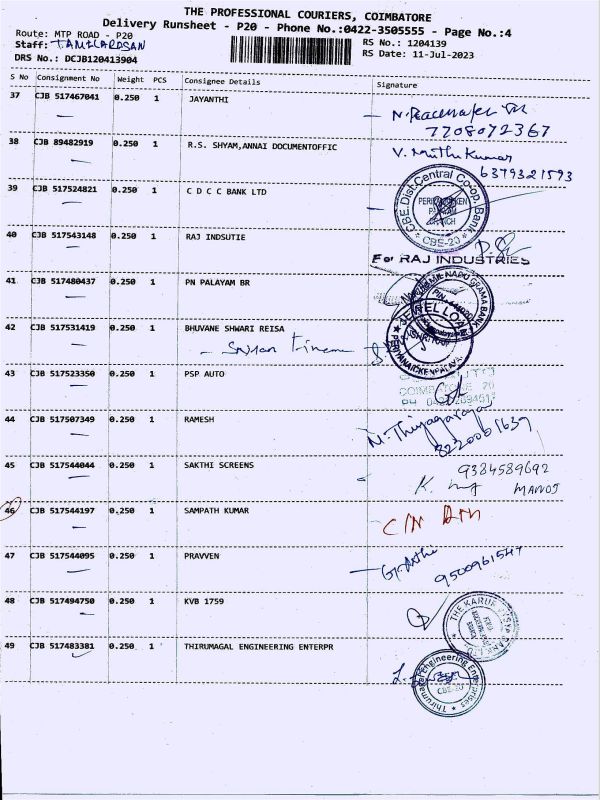 THE PROFESSIONAL COURIERS, COIMBATORE
Delivery Runsheet - P20 - Phone No.:0422-3505555 - Page No.:4
Route: MTP ROAD - P20
RS No.: 1204139
Staff: TAMILARASAN
RS Date: 11-Jul-2023
DRS No.: DCJB120413904
S No Consignment No Weight PCS Consignee Details Signature
37 CJB 517467041 0.250 1 JAYANTHI
7708072367
38 CJB 89482919 0.250 1 R.S. SHYAM,ANNAI DOCUMENTOFFIC V. Muthu Kumar
6379321593
39 CJB 517524821 0.250 1 C D C C BANK LTD
CBE.Dist.Central Co-op. Bank
CBE-20
40 CJB 517543148 0.250 1 RAJ INDSUTIE
For RAJ INDUSTRIES
41 CJB 517480437 0.250 1 PN PALAYAM BR
JEWEL LOAN
42 CJB 517531419 0.250 1 BHUVANE SHWARI REISA
43 CJB 517523350 0.250 1 PSP AUTO
44 CJB 517507349 0.250 1 RAMESH
N. Thiyagaraja
8220001639
45 CJB 517544044 0.250 1 SAKTHI SCREENS 9384589692
MANOJ
46 CJB 517544197 0.250 1 SAMPATH KUMAR
47 CJB 517544095 0.250 1 PRAVVEN
9500961547
48 CJB 517494750 0.250 1 KVB 1759
49 CJB 517483381 0.250 1 THIRUMAGAL ENGINEERING ENTERPR
Thirumagal Engineering Enterprises
CBE-20